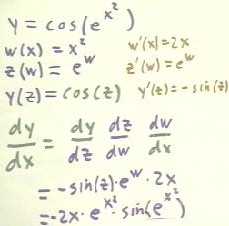 y = cos(e^x²)
w(x) = x² w'(x) = 2x
z(w) = e^w z'(w) = e^w
y(z) = cos(z) y'(z) = -sin(z)
dy/dx = dy/dz dz/dw dw/dx
= -sin(z)·e^w·2x
= -2x·e^x²·sin(e^x²)